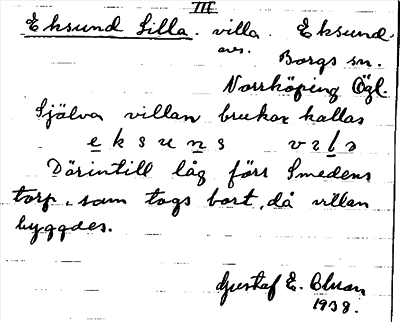 III
Eksund Lilla. villa. Eksund.
avs.
Borgs sn.
Norrköping Ögl.
Själva villan brukar kallas
eksuns vila
Därintill låg förr Smedens
torp, som togs bort, då villan
byggdes.
Gustaf E. Olsson
1938.